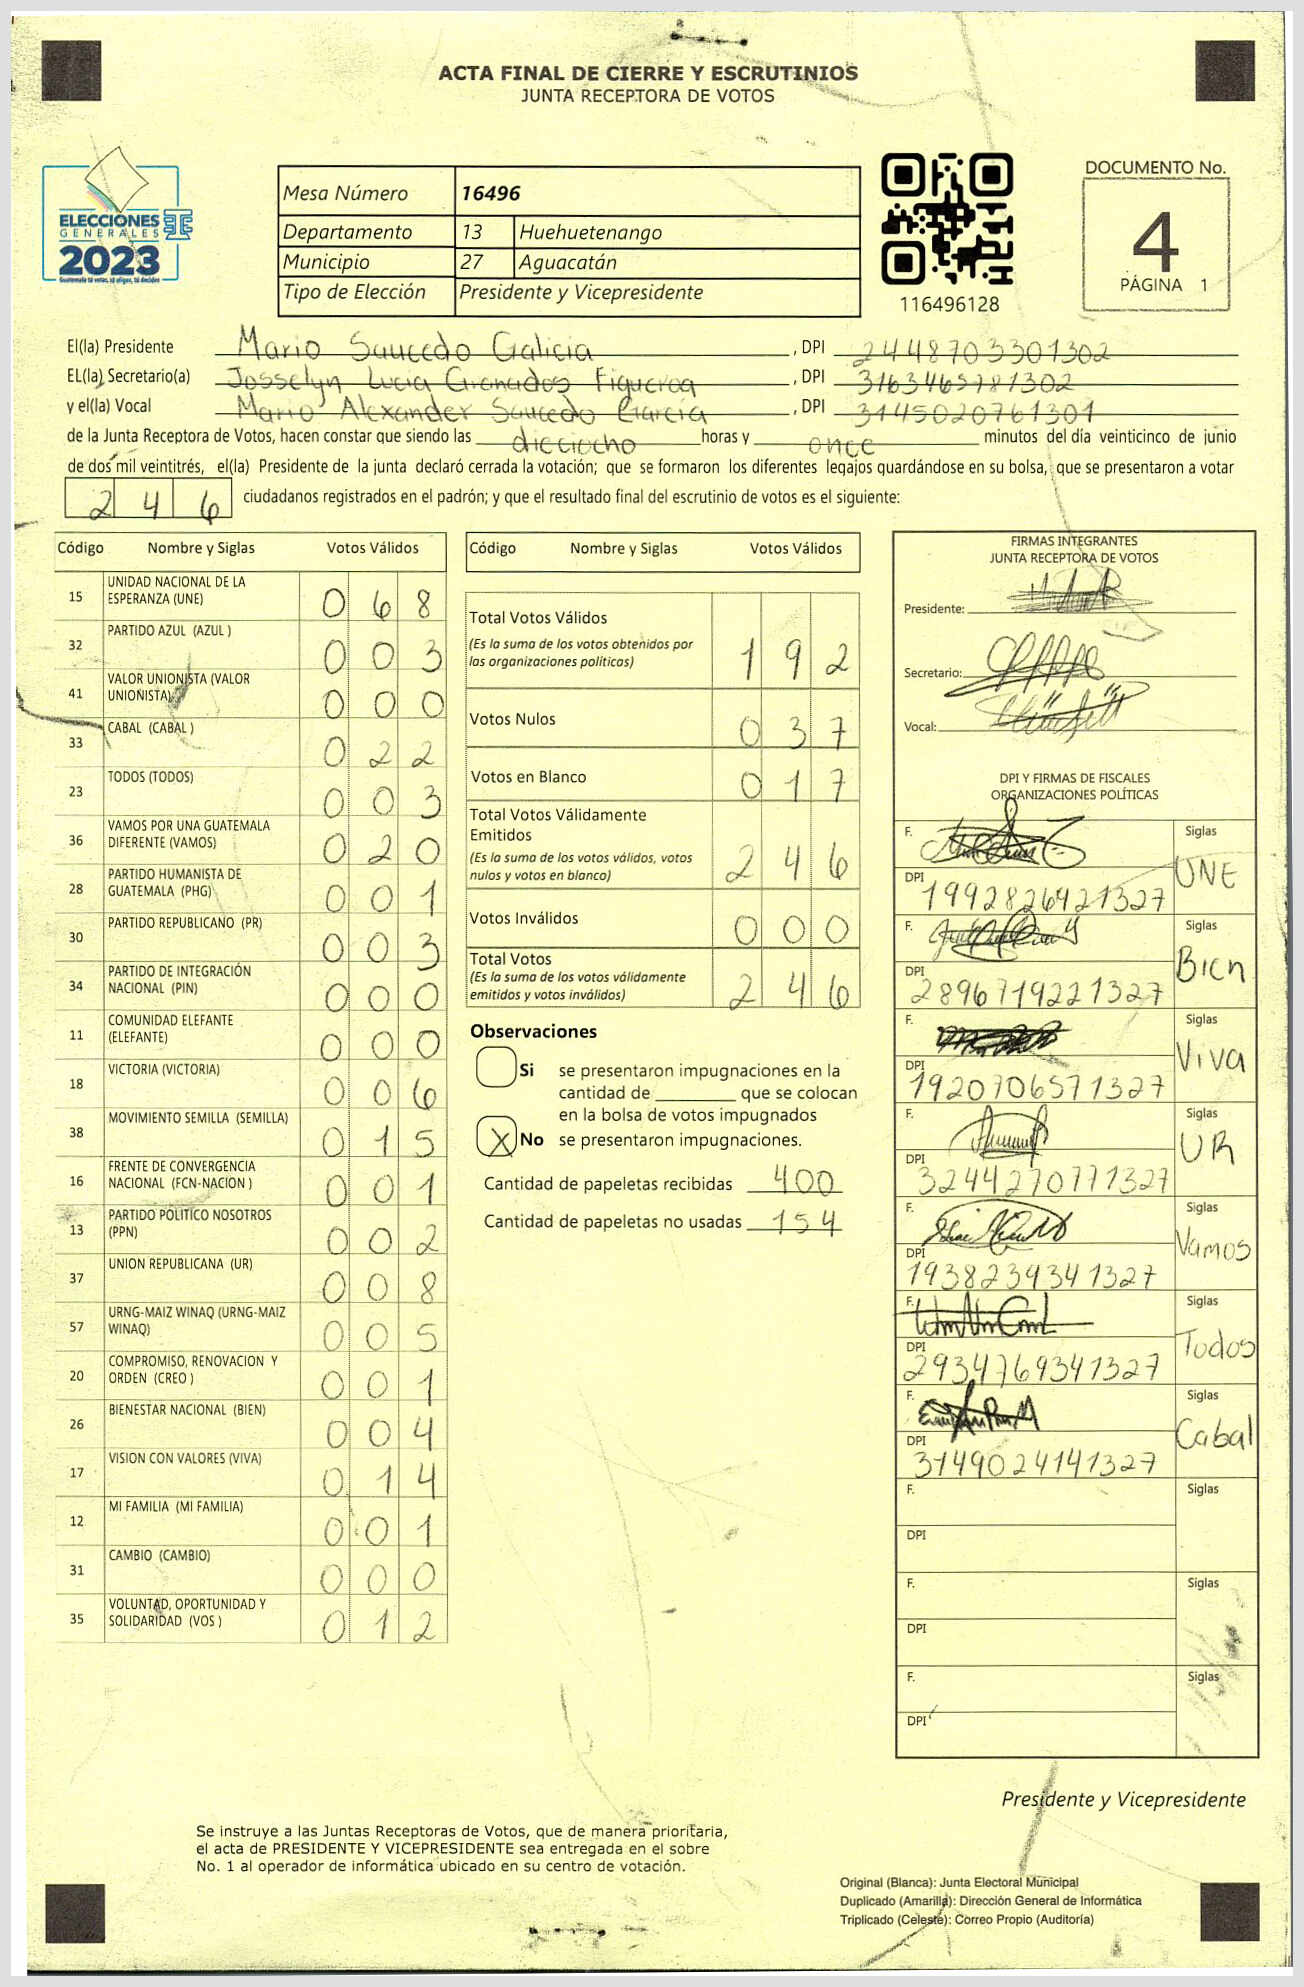 ACTA FINAL DE CIERRE Y ESCRUTINIOS
JUNTA RECEPTORA DE VOTOS
ELECCIONES
GENERALES
2023
Mesa Número 16496
Departamento 13 Huehuetenango
Municipio 27 Aguacatán
Tipo de Elección Presidente y Vicepresidente
116496128
DOCUMENTO No.
4
PÁGINA 1
El(la) Presidente Mario Saucedo Galicia , DPI 2448703301302
EL(la) Secretario(a) Josselyn Lucia Granados Figueroa , DPI 3163465781302
y el(la) Vocal Mario Alexander Saucedo García , DPI 3145020761301
de la Junta Receptora de Votos, hacen constar que siendo las dieciocho horas y once minutos del día veinticinco de junio
de dos mil veintitrés, el(la) Presidente de la junta declaró cerrada la votación; que se formaron los diferentes legajos quardándose en su bolsa, que se presentaron a votar
246 ciudadanos registrados en el padrón; y que el resultado final del escrutinio de votos es el siguiente:
Código Nombre y Siglas Votos Válidos
15 UNIDAD NACIONAL DE LA ESPERANZA (UNE) 068
32 PARTIDO AZUL (AZUL ) 003
41 VALOR UNIONISTA (VALOR UNIONISTA) 000
33 CABAL (CABAL ) 022
23 TODOS (TODOS) 003
36 VAMOS POR UNA GUATEMALA DIFERENTE (VAMOS) 020
28 PARTIDO HUMANISTA DE GUATEMALA (PHG) 001
30 PARTIDO REPUBLICANO (PR) 003
34 PARTIDO DE INTEGRACIÓN NACIONAL (PIN) 000
11 COMUNIDAD ELEFANTE (ELEFANTE) 000
18 VICTORIA (VICTORIA) 006
38 MOVIMIENTO SEMILLA (SEMILLA) 015
16 FRENTE DE CONVERGENCIA NACIONAL (FCN-NACION ) 001
13 PARTIDO POLITICO NOSOTROS (PPN) 002
37 UNION REPUBLICANA (UR) 008
57 URNG-MAIZ WINAQ (URNG-MAIZ WINAQ) 005
20 COMPROMISO, RENOVACION Y ORDEN (CREO ) 001
26 BIENESTAR NACIONAL (BIEN) 004
17 VISION CON VALORES (VIVA) 014
12 MI FAMILIA (MI FAMILIA) 001
31 CAMBIO (CAMBIO) 000
35 VOLUNTAD, OPORTUNIDAD Y SOLIDARIDAD (VOS ) 012
Código Nombre y Siglas Votos Válidos
Total Votos Válidos 192
(Es la suma de los votos obtenidos por
las organizaciones políticas)
Votos Nulos 037
Votos en Blanco 017
Total Votos Válidamente
Emitidos 246
(Es la suma de los votos válidos, votos
nulos y votos en blanco)
Votos Inválidos 000
Total Votos 246
(Es la suma de los votos válidamente
emitidos y votos inválidos)
Observaciones
Si se presentaron impugnaciones en la
cantidad de ________ que se colocan
en la bolsa de votos impugnados
X No se presentaron impugnaciones.
Cantidad de papeletas recibidas 400
Cantidad de papeletas no usadas 154
FIRMAS INTEGRANTES
JUNTA RECEPTORA DE VOTOS
Presidente:
Secretario:
Vocal:
DPI Y FIRMAS DE FISCALES
ORGANIZACIONES POLÍTICAS
F. Siglas UNE
DPI 1992826921327
F. Siglas Bien
DPI 2896719221327
F. Siglas Viva
DPI 1920706571327
F. Siglas UR
DPI 3244270771327
F. Siglas Vamos
DPI 1938239341327
F. Siglas Todos
DPI 2934769341327
F. Siglas Cabal
DPI 3149024141327
F. Siglas
DPI
F. Siglas
DPI
F. Siglas
DPI
Presidente y Vicepresidente
Se instruye a las Juntas Receptoras de Votos, que de manera prioritaria,
el acta de PRESIDENTE Y VICEPRESIDENTE sea entregada en el sobre
No. 1 al operador de informática ubicado en su centro de votación.
Original (Blanca): Junta Electoral Municipal
Duplicado (Amarilla): Dirección General de Informática
Triplicado (Celeste): Correo Propio (Auditoría)